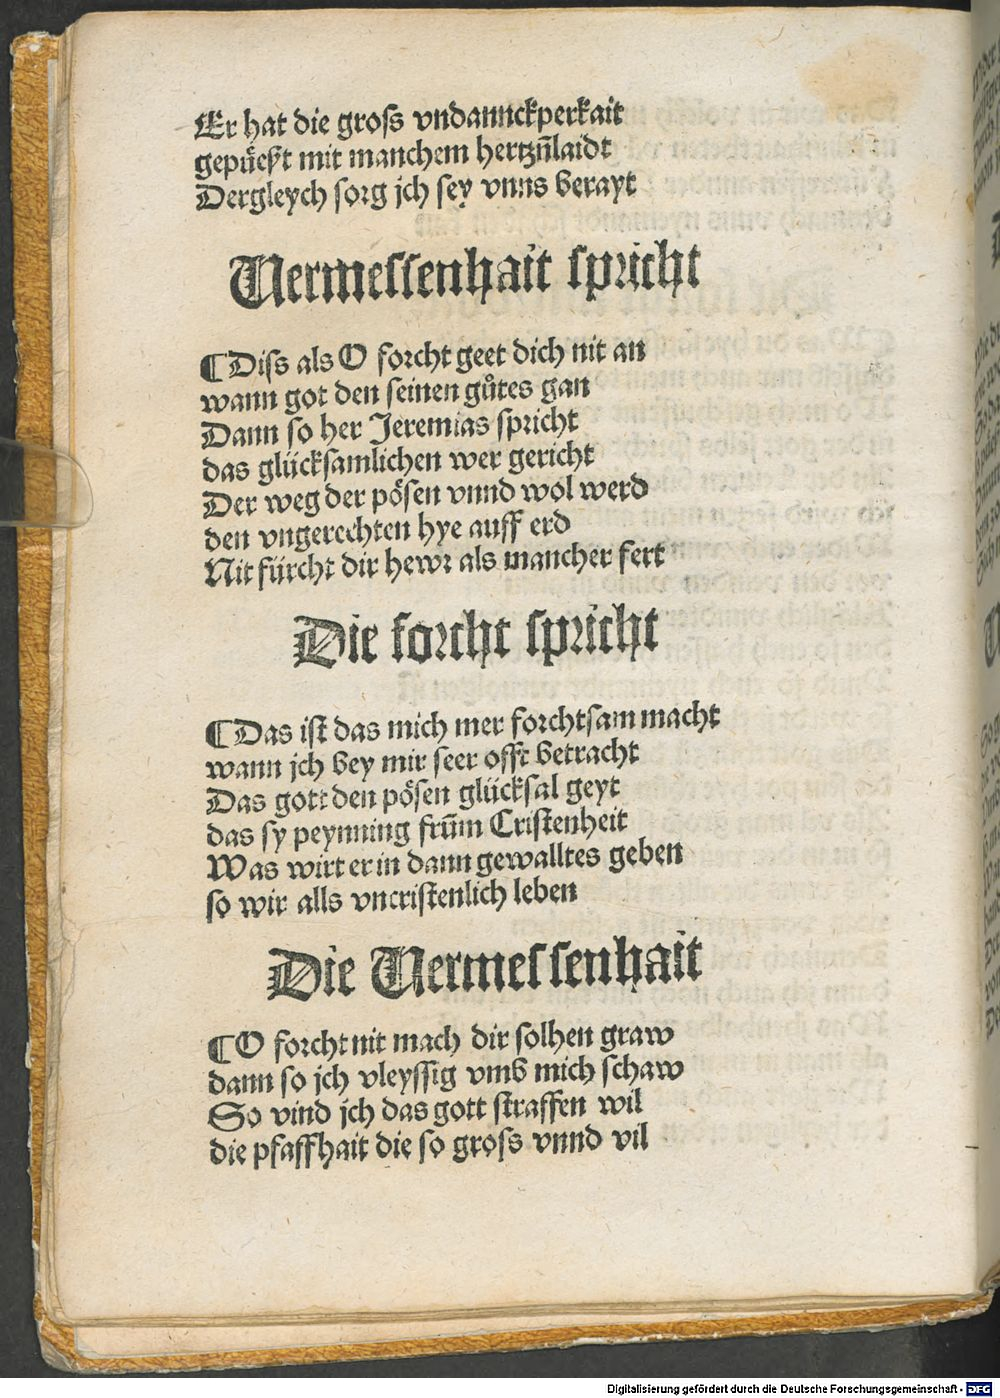 Er hat die gross vndannckperkait
gepüeßt mit manchem hertzn̄laidt
Dergleych sorg jch sey vnns berayt
Vermessenhait spricht
¶ Diss als O forcht geet dich nit an
wann got den seinen gůtes gan
Dann so her Jeremias spricht
das glücksamlichen wer gericht
Der weg der pösen vnnd wol werd
den vngerechten hye auff erd
Nit fürcht dir hewr als mancher fert
Die forcht spricht
¶ Das ist das mich mer forchtsam macht
wann jch bey mir seer offt betracht
Das gott den pösen glücksal geyt
das sy peynning frūm Cristenheit
Was wirt er in dann gewalltes geben
so wir alls vncristenlich leben
Die Vermessenhait
¶ O forcht nit mach dir solhen graw
dann so jch vleyssig vmb mich schaw
So vind jch das gott straffen wil
die pfaffhait die so gross vnnd vil
Digitalisierung gefördert durch die Deutsche Forschungsgemeinschaft - DFG